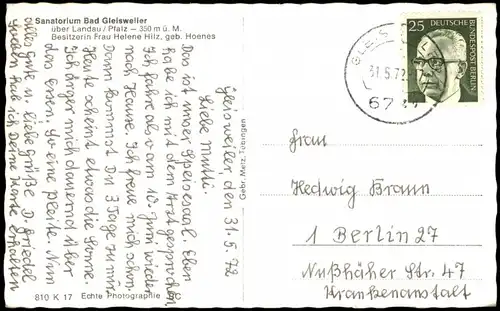 Sanatorium Bad Gleisweiler
über Landau / Pfalz — 350 m ü. M.
Besitzerin Frau Helene Hilz, geb. Hoenes
Gleisweiler, den 31.5.72
Liebe Mutti.
Das ist unser Speisesaal. Eben
habe ich mit dem Arzt gesprochen,
ich fahre also am 10. Juni wieder
nach Hause. Ich freue mich schon.
Dann kommst Du 3 Tage zu mir.
Heute scheint etwas die Sonne.
Ich ärger mich dauernd über
das Essen. So eine Pleite. Nun
alles gute u. liebe grüße D.
soeben hab ich Deine Karte erhalten
810 K 17 Echte Photographie
Gebr. Metz, Tübingen
31.5.72
25
DEUTSCHE BUNDESPOST BERLIN
Frau
Hedwig Braun
1 Berlin 27
Nußhäher Str. 47
Krankenanstalt